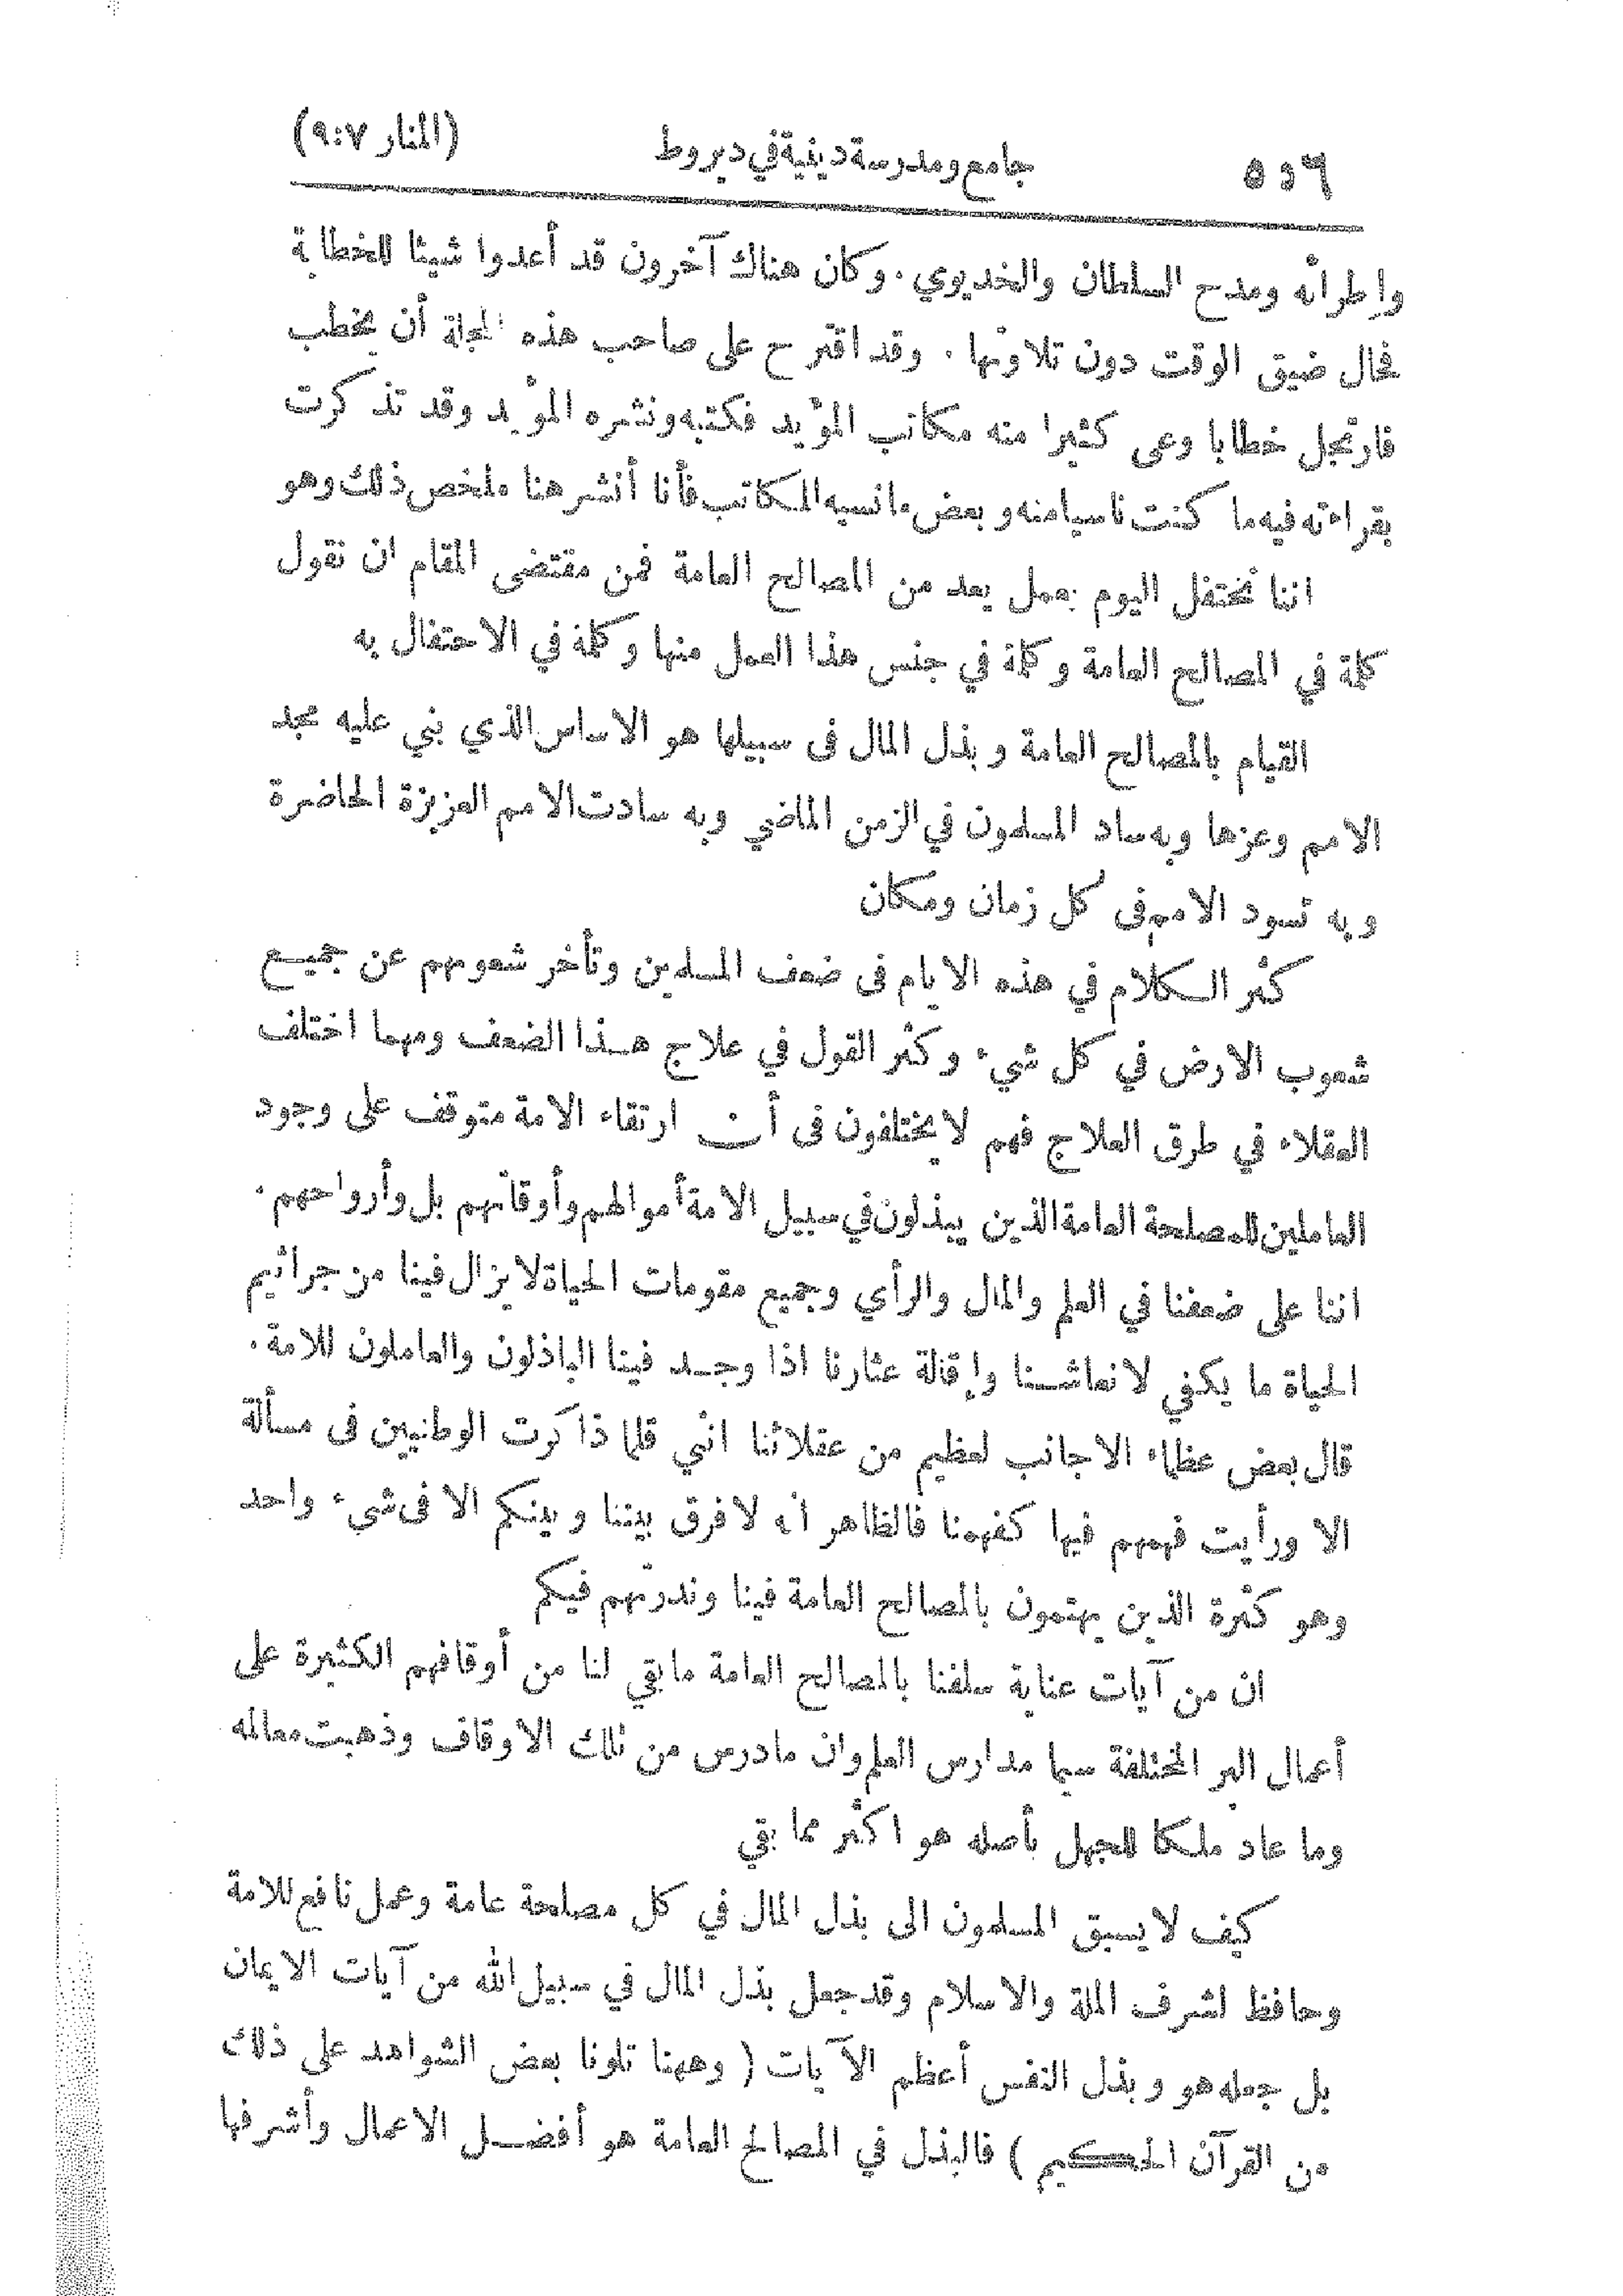 ٣٥٦ جامع ومدرسة دينية في ديروط (المنار ٧:٩)
وإطرائه ومدح السلطان والخديوي. وكان هناك آخرون قد أعدوا شيئا للخطابة
فحال ضيق الوقت دون تلاوتها. وقد اقترح على صاحب هذه المجلة أن يخطب
فارتجل خطابا وعى كثيرا منه مكاتب المؤيد فكتبه ونشره المؤيد وقد تذكرت
بقراءته فيه ما كنت ناسيا منه وبعض ما نسيه المكاتب فأنا أنشر هنا ملخص ذلك وهو
اننا نحتفل اليوم بعمل يعد من المصالح العامة فمن مقتضى المقام ان نقول
كلمة في المصالح العامة وكلمة في جنس هذا العمل منها وكلمة في الاحتفال به
القيام بالمصالح العامة وبذل المال فى سبيلها هو الاساس الذي بني عليه مجد
الامم وعزها وبه ساد المسلمون في الزمن الماضي وبه سادت الامم العزيزة الحاضرة
وبه تسود الامم فى كل زمان ومكان
كثر الكلام في هذه الايام فى ضعف المسلمين وتأخر شعوبهم عن جميع
شعوب الارض في كل شيء وكثر القول في علاج هذا الضعف ومهما اختلف
العقلاء في طرق العلاج فهم لا يختلفون فى أن ارتقاء الامة متوقف على وجود
العاملين للمصلحة العامة الذين يبذلون في سبيل الامة أموالهم وأوقاتهم بل وأرواحهم.
اننا على ضعفنا في العلم والمال والرأي وجميع مقومات الحياة لا يزال فينا من جراثيم
الحياة ما يكفي لانعاشنا وإقالة عثارنا اذا وجد فينا الباذلون والعاملون للامة.
قال بعض عظماء الاجانب لعظيم من عقلائنا انني قلما ذاكرت الوطنيين فى مسألة
الا ورأيت فهمهم فيها كفهمنا فالظاهر انه لا فرق بيننا وبينكم الا فى شيء واحد
وهو كثرة الذين يهتمون بالمصالح العامة فينا وندرتهم فيكم
ان من آيات عناية سلفنا بالمصالح العامة ما بقي لنا من أوقافهم الكثيرة على
أعمال البر المختلفة سيما مدارس العلم وان ما درس من تلك الاوقاف وذهبت معالمه
وما عاد ملكا للجهل بأصله هو اكثر مما بقي
كيف لا يسبق المسلمون الى بذل المال في كل مصلحة عامة وعمل نافع للامة
وحافظ لشرف الملة والاسلام وقد جعل بذل المال في سبيل الله من آيات الايمان
بل جعله هو وبذل النفس أعظم الآيات ( وههنا تلونا بعض الشواهد على ذلك
من القرآن الحكيم ) فالبذل في المصالح العامة هو أفضل الاعمال وأشرفها